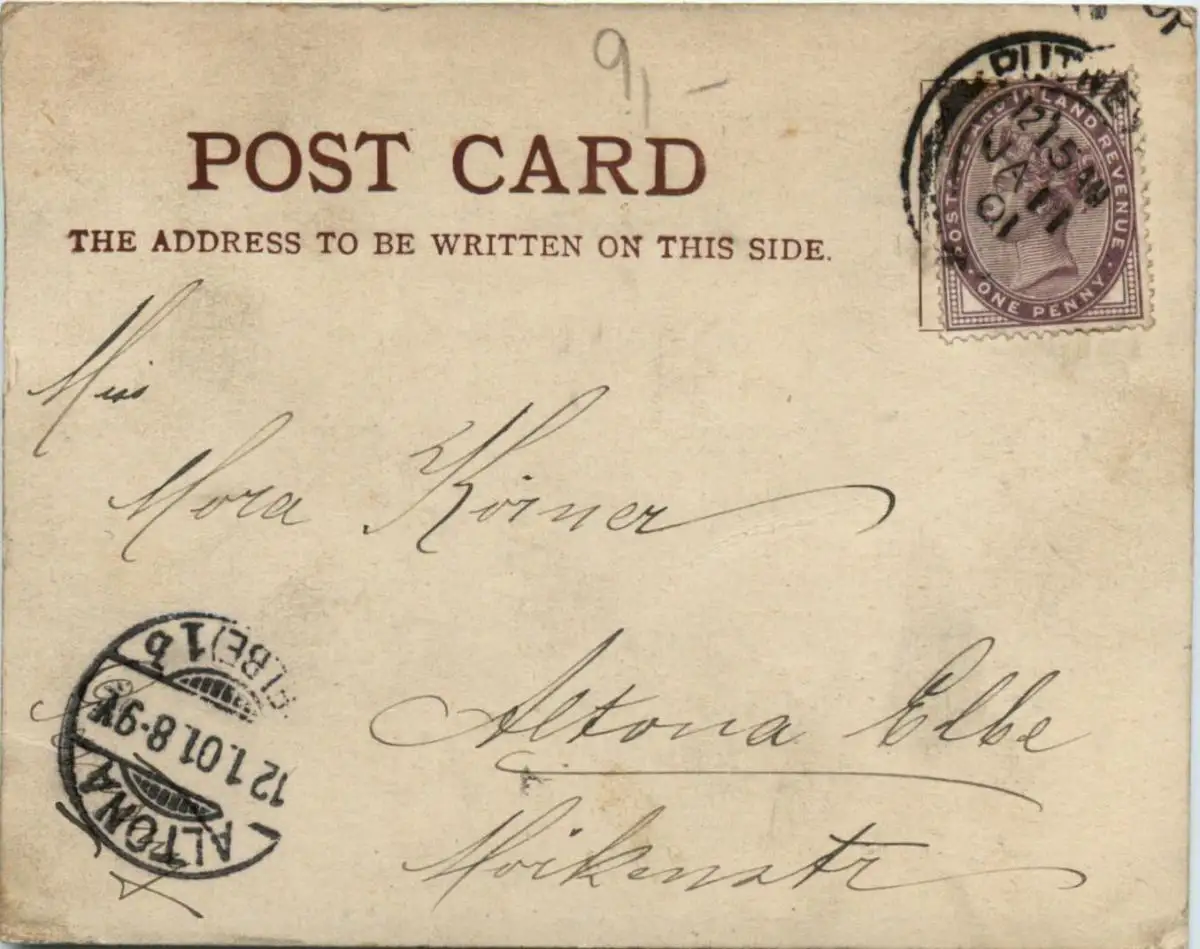 9/-
POST CARD
THE ADDRESS TO BE WRITTEN ON THIS SIDE.
PUTNEY
1215 AM
JA 11
01
POSTAGE AND INLAND REVENUE
ONE PENNY
Miss
Mora Körner
Altona Elbe
Moikenstr
ALTONA
12.1.01.8-9V
(ELBE) 1 b